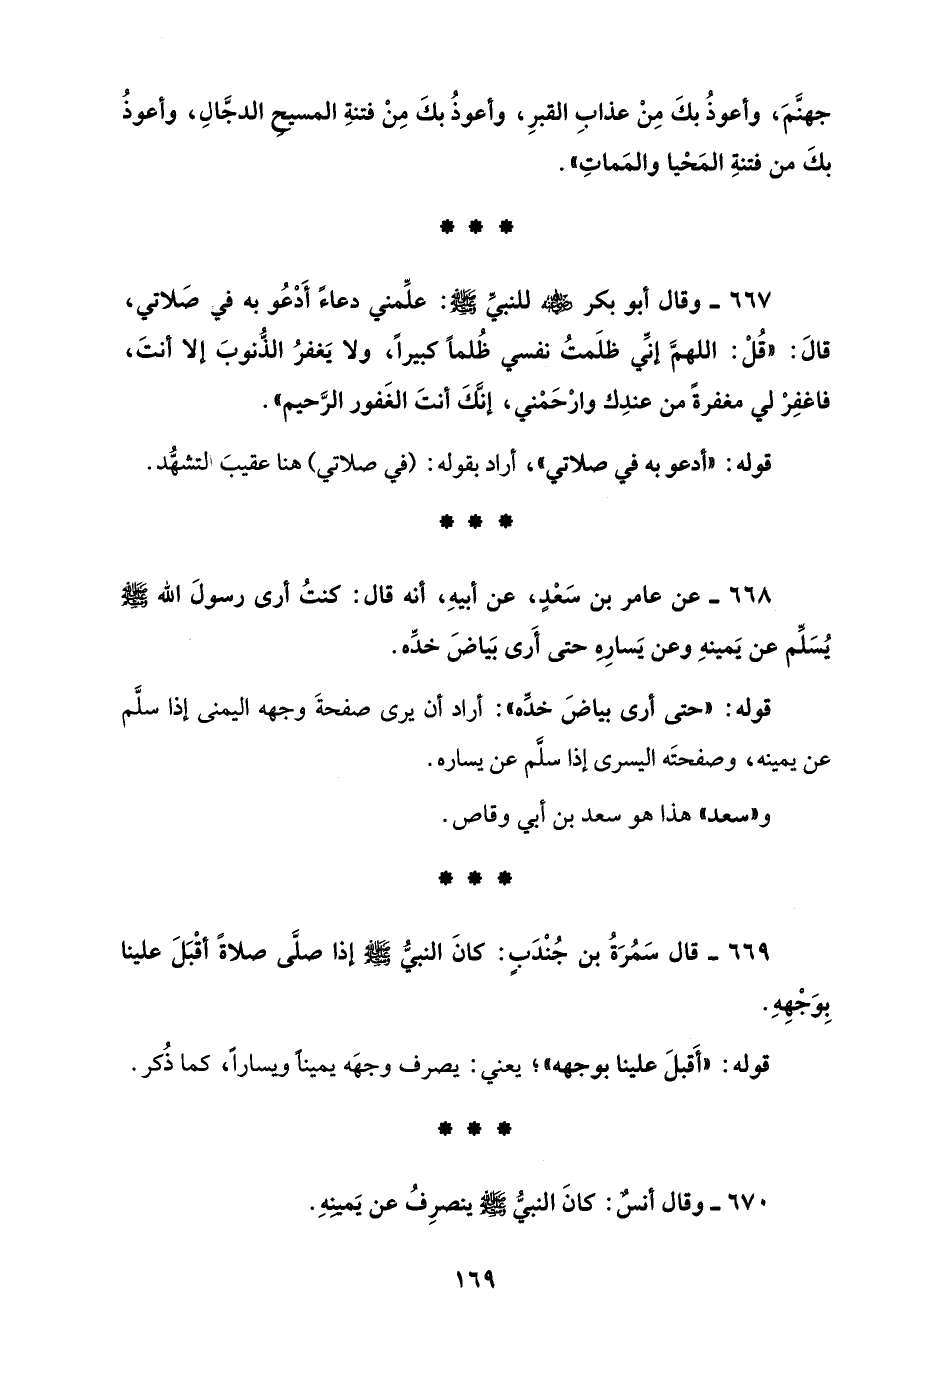 جهنَّمَ، وأعوذُ بكَ مِنْ عذابِ القبرِ، وأعوذُ بكَ مِنْ فتنةِ المسيحِ الدجَّالِ، وأعوذُ
بكَ من فتنةِ المَحْيا والمَماتِ».
* * *
٦٦٧ ـ وقال أبو بكر ﵁ للنبيِّ ﷺ: علِّمني دعاءً أَدْعُو به في صَلاتي،
قالَ: «قُلْ: اللهمَّ إنِّي ظلَمتُ نفسي ظُلماً كبيراً، ولا يَغفرُ الذُّنوبَ إلا أنتَ،
فاغفِرْ لي مغفرةً من عندِك وارْحَمْني، إنَّكَ أنتَ الغَفور الرَّحيم».
قوله: «أدعو به في صلاتي»، أراد بقوله: (في صلاتي) هنا عقيبَ التشهُّد.
* * *
٦٦٨ ـ عن عامر بن سَعْدٍ، عن أبيهِ، أنه قال: كنتُ أرى رسولَ الله ﷺ
يُسَلِّم عن يَمينهِ وعن يَسارِهِ حتى أَرى بَياضَ خدِّه.
قوله: «حتى أرى بياضَ خدِّه»: أراد أن يرى صفحةَ وجهه اليمنى إذا سلَّم
عن يمينه، وصفحتَه اليسرى إذا سلَّم عن يساره.
و«سعد» هذا هو سعد بن أبي وقاص.
* * *
٦٦٩ ـ قال سَمُرَةُ بن جُنْدَبٍ: كانَ النبيُّ ﷺ إذا صلَّى صلاةً أقْبَلَ علينا
بِوَجْهِهِ.
قوله: «أَقبلَ علينا بوجهه»؛ يعني: يصرف وجهَه يميناً ويساراً، كما ذُكر.
* * *
٦٧٠ ـ وقال أنسٌ: كانَ النبيُّ ﷺ ينصرِفُ عن يَمينِهِ.
١٦٩